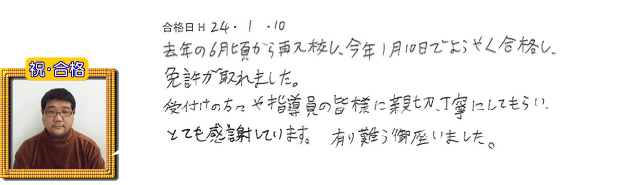 合格日H 24・1・10
去年の6月頃から再入校し、今年1月10日でようやく合格し、
祝・合格
免許が取れました。
受付けの方々や指導員の皆様に親切、丁寧にしてもらい、
とても感謝しています。 有り難う御座いました。